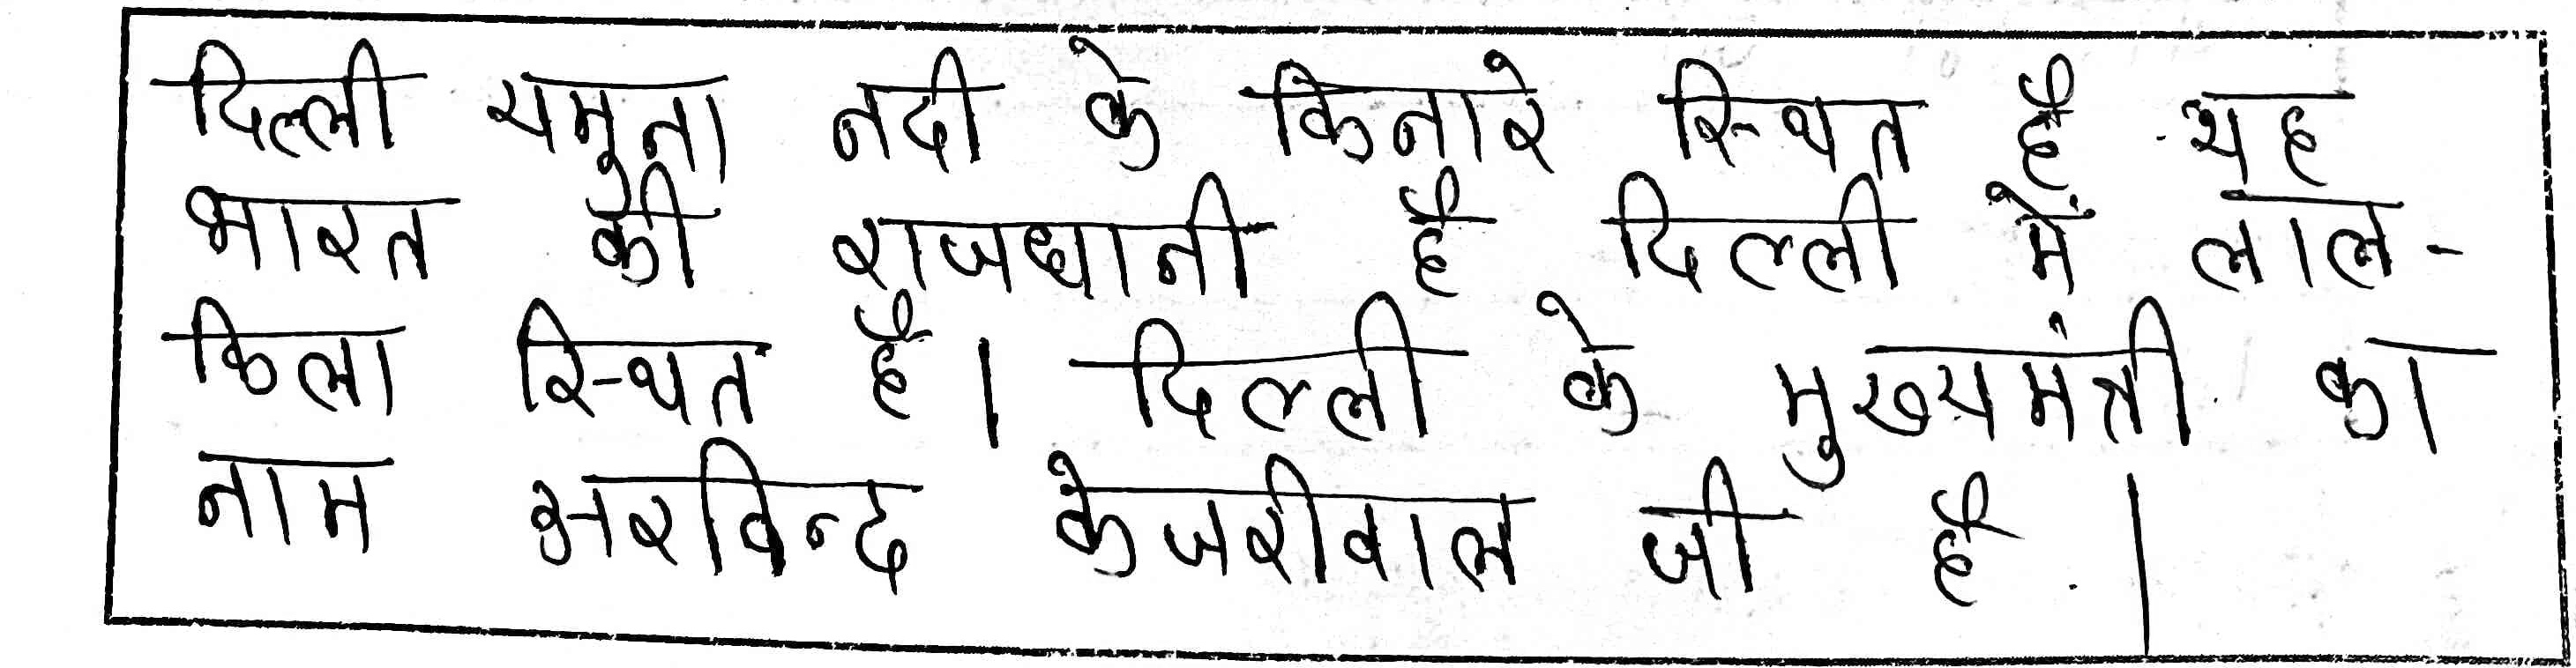 दिल्ली यमुना नदी के किनारे स्थित है यह
भारत की राजधानी है दिल्ली में लाल-
किला स्थित है। दिल्ली के मुख्यमंत्री का
नाम अरविन्द केजरीवाल जी है।